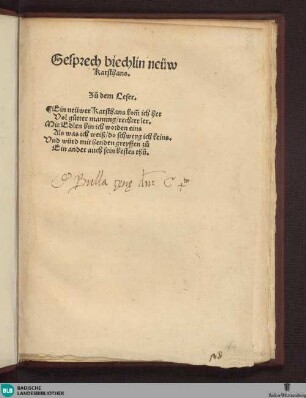 Gesprech biechlin neüw
Karsthans.
Zů dem Leser.
¶Ein neüwer Karsthans kom̃ ich her
Vol gůter manung/rechter ler.
Mit Edlen bin ich worden eins
Als was ich weiß/do schweyg ich keins.
Vnd würd mit henden greyffen zů
Ein ander auch sein bestes thů.
Bulla
BLB
BADISCHE
LANDESBIBLIOTHEK
Baden-Württemberg